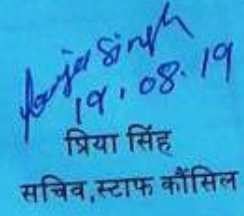 Singh
19.08.19
प्रिया सिंह
सचिव,स्टाफ कौंसिल